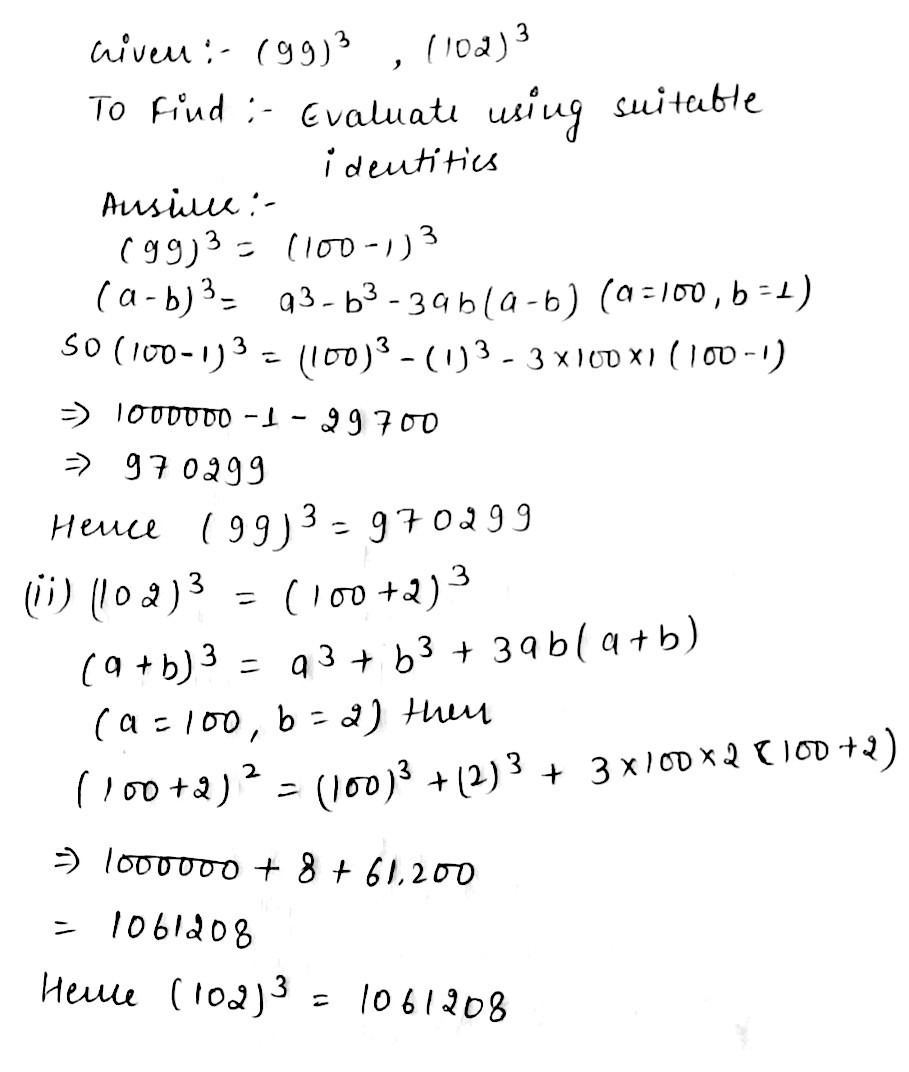 Given :- (99)³ , (102)³
To Find :- Evaluate using suitable
identities
Answer :-
(99)³ = (100-1)³
(a-b)³ = a³-b³-3ab(a-b) (a=100, b=1)
SO (100-1)³ = (100)³-(1)³-3×100×1(100-1)
⇒ 1000000-1-29700
⇒ 970299
Hence (99)³ = 970299
(ii) (102)³ = (100+2)³
(a+b)³ = a³+b³+3ab(a+b)
(a=100, b=2) then
(100+2)² = (100)³+(2)³+3×100×2(100+2)
⇒ 1000000+8+61,200
= 1061208
Hence (102)³ = 1061208